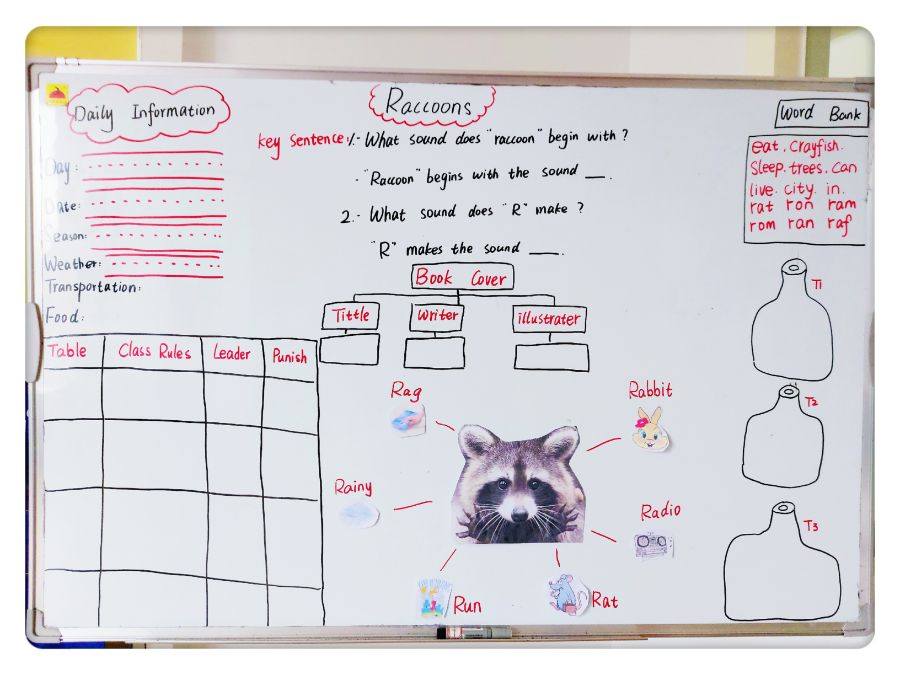 Daily Information
Day:
Date:
Season:
Weather:
Transportation:
Food:
Raccoons
Key Sentence: 1.- What sound does "raccoon" begin with?
- "Raccoon" begins with the sound ___.
2.- What sound does "R" make?
"R" makes the sound ___.
Book Cover
Tittle
Writer
illustrater
Word Bank
eat. Crayfish.
Sleep. trees. can
live. city. in.
rat ron ram
rom ran raf
T1
T2
T3
Table Class Rules Leader Punish
Rag
Rabbit
Rainy
Radio
Run
Rat